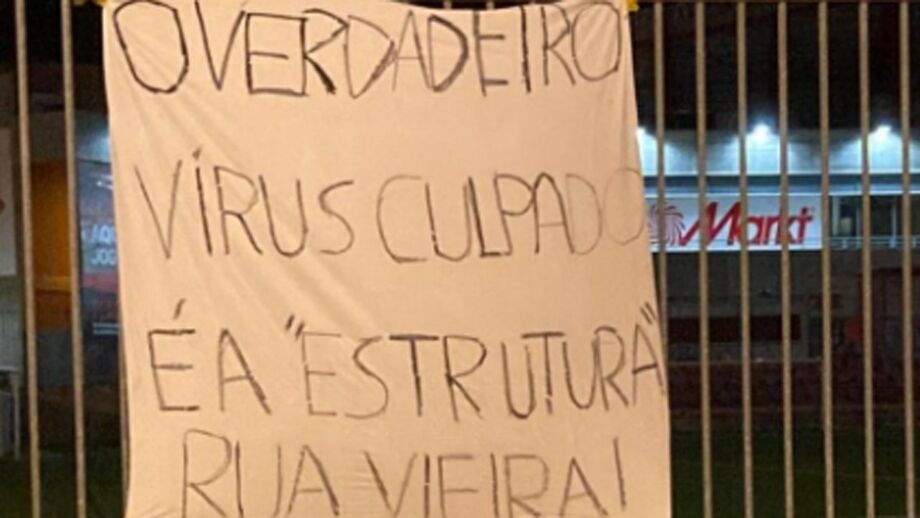 O VERDADEIRO
VÍRUS CULPADO
É A "ESTRUTURA"
RUA VIEIRA!
Markt